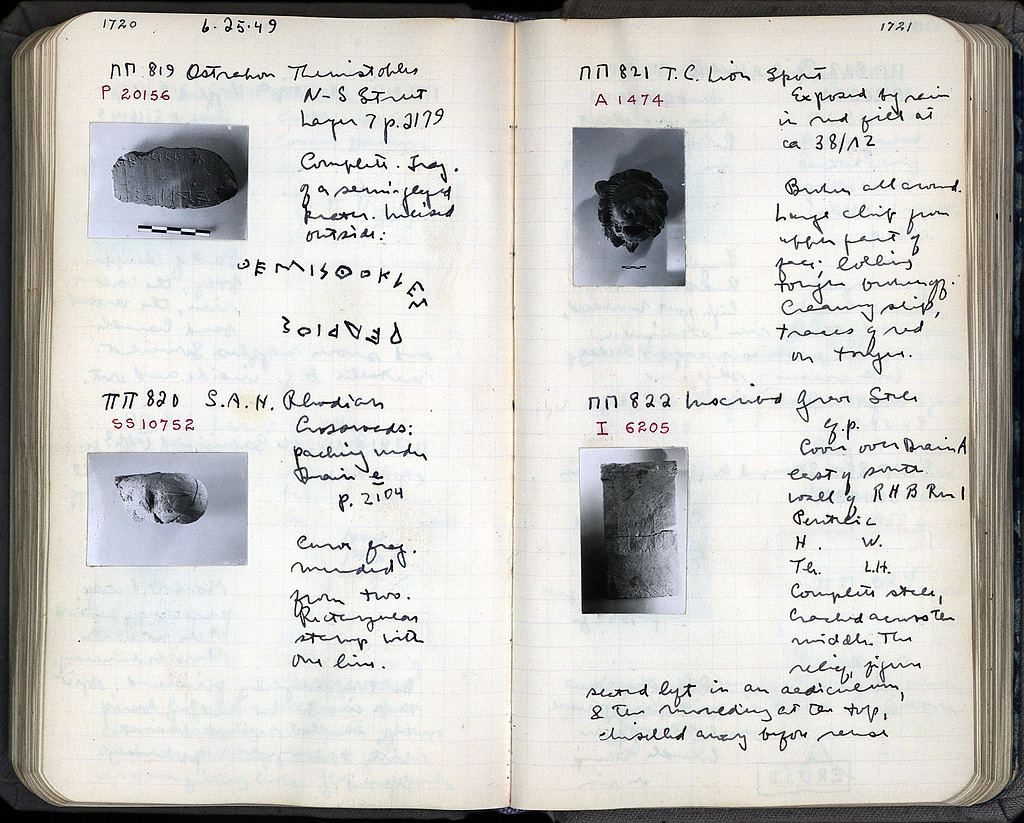 1720 6-25-49
ΠΠ 819 Ostrakon Themistokles
P 20156
N-S Street
Layer 7 p. 2179
Complete. Frag.
of a semi-glazed
krater. Incised
outside:
ΘEMISΘOKLEES
ΠΠ 820 S.A.H. Rhodian
SS 10752
Crossroads:
packing under
Drain e
p. 2104
Curved frag.
mended
from two.
Rectangular
stamp with
one line.
1721
ΠΠ 821 T.C. Lion Spout
A 1474
Exposed by rain
in red fill at
ca 38/12
Broken all around.
Large chip from
upper part of
face; lolling
tongue broken off.
Creamy slip,
traces of red
on tongue.
ΠΠ 822 Inscribed Grave Stele
I 6205
g.p.
Cover over Drain A
east of south
wall of RHB Rm 1
Pentelic
H. W.
Th. L.H.
Complete stele,
cracked across the
middle. The
relief, figure
seated left in an aediculum,
& the moulding at the top,
chiselled away before reuse